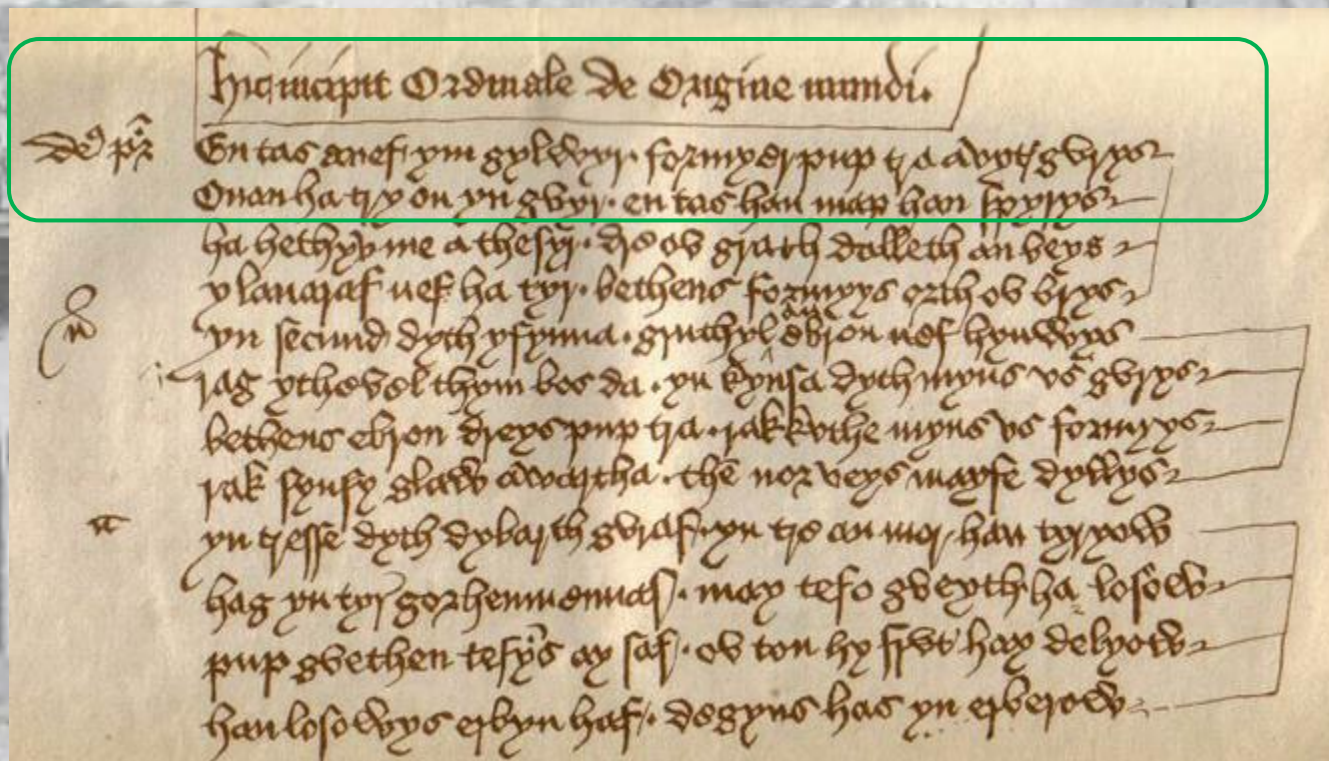 hic incipit Ordinale de Origine mundi.
de⁹ pr̃ En tas a nef ym gylwyr. formyer pup tra a vyt gvrys
Onan ha try on yn gvyr. en tas han map han spyrys
ha hethyv me a thesyr. dre ov grath dalleth an beys
y lavaraf nef ha tyr. bethens formyys orth ov brys
yn secund dyth y fynna. gruthyl ebron nef hynwys
rag ythevel thym bos da. yn kynsa dyth myns vs gvrys
bethens ebron dreys pup tra. rak kvthe myns vs formyys
rak synsy glaw awartha. the nor veys may fe dyllys
yn tresse dyth dybarth gvraf. yn tre an mor han tyryow
hag yn tyr gorhenmennaf. may tefo gveyth ha losow
pup gvethen tefyns ay saf. ov ton hy frvt hay delyow
han losowys erbyn haf. degyns has yn erberow